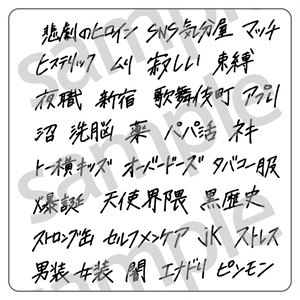 悲劇のヒロイン SNS 気分屋 マッチ
ヒステリック ムリ 寂しい 束縛
夜職 新宿 歌舞伎町 アプリ
沼 洗脳 薬 パパ活 ネキ
トー横キッズ オーバードーズ タバコ一服
爆誕 天使界隈 黒歴史
ストロング缶 セルフメンケア JK ストレス
男装 女装 闇 エナドリ ピンモン
Sample
Sample
Sample